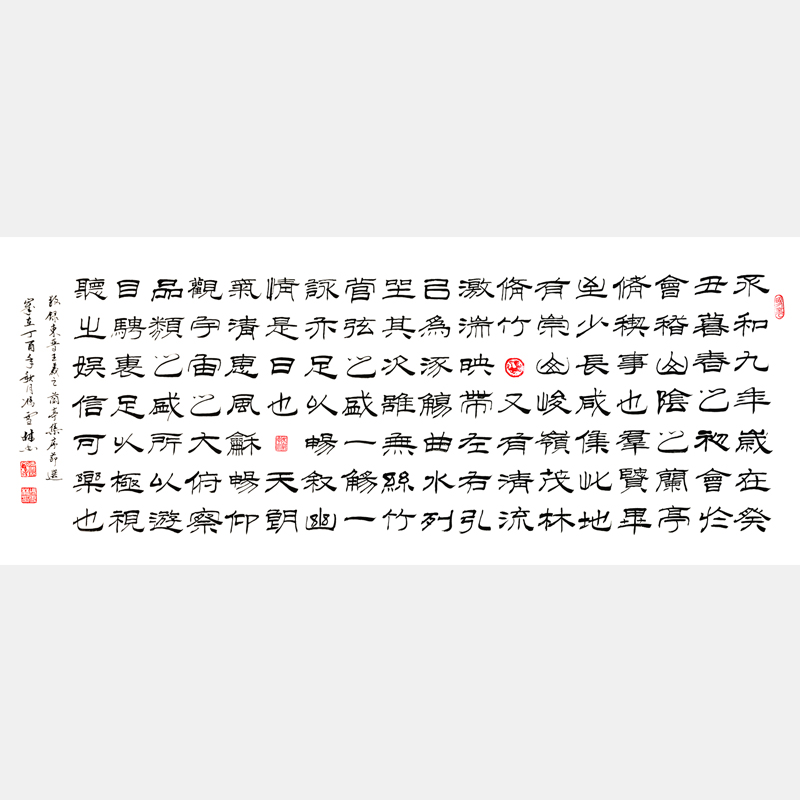 永和九年歲在癸
丑暮春之初會於
會稽山陰之蘭亭
脩稧事也羣賢畢
至少長咸集此地
有崇山峻嶺茂林
脩竹又有清流
激湍映帶左右引
㠯為流觴曲水列
坐其次雖無絲竹
管弦之盛一觴一
詠亦足以暢叙幽
情是日也天朗
氣清惠風龢暢仰
觀宇宙之大俯察
品類之盛所以遊
目騁裏足以極視
聽之娛信可樂也
錄東晉王羲之蘭亭集序節選
歲在丁酉年秋月馮雪林書